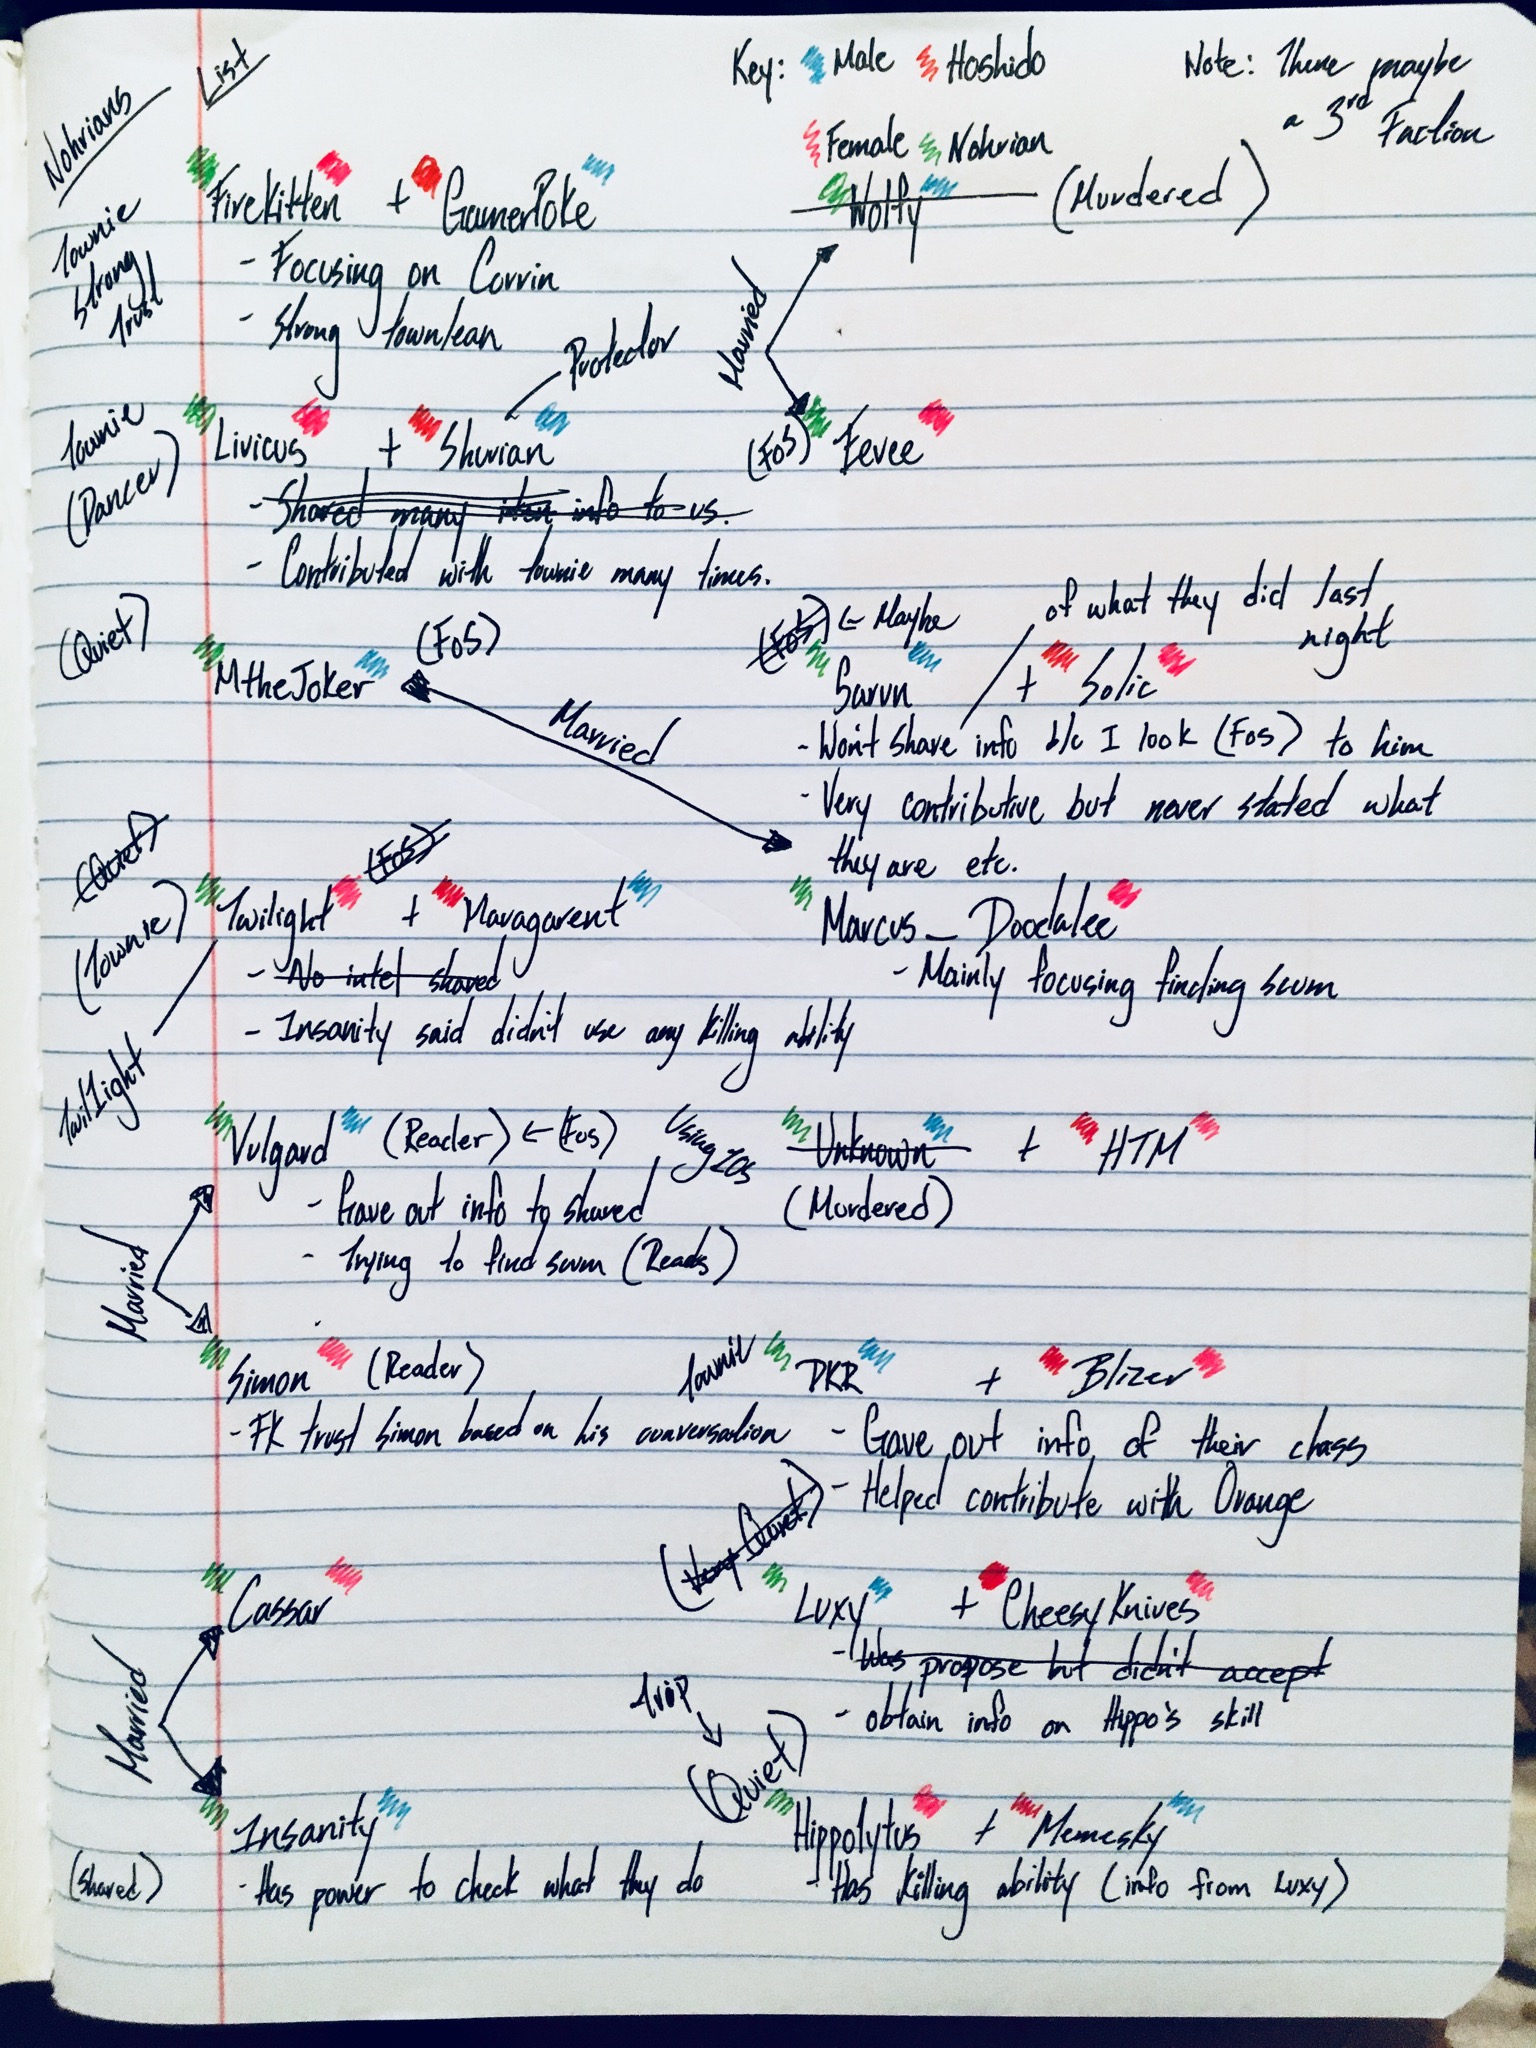 Nohrians List
Key: Male Hoshido
Female Nohrian
Note: There maybe
a 3rd Faction
Townie
Strong
Trust
FireKitten + GamerPoke
- Focusing on Corrin
- Strong townlean
Wolfy (Murdered)
Married
Protector
Townie
(Dancer)
Livicus + Shurian
- Shared many item info to us.
- Contributed with townie many times.
(FoS) Eevee
(Quiet)
MtheJoker (FoS)
Married
(FoS) ← Maybe
of what they did last
night
Sarvn + Solic
- Won't share info b/c I look (FoS) to him
- Very contributive but never stated what
they are etc.
(Quiet)
(Townie)
Twilight (FoS) + Maragarent
- No intel shared
- Insanity said didn't use any killing ability
Twillight
Marcus_Doodalee
- Mainly focusing finding scum
Vulgard (Reader) ← (FoS)
- Gave out info to shared
- Trying to find scum (Reads)
Using
Unknown + HTM
(Murdered)
Married
Simon (Reader)
- FK trust Simon based on his conversation
Townie
DKR + Blizer
- Gave out info of their class
- Helped contribute with Orange
Cassar
Married
(Very Quiet)
Luxy + CheesyKnives
- Was propose but didn't accept
- obtain info on Hippo's skill
Insanity
(shared)
- Has power to check what they do
Trip
(Quiet)
Hippolytus + Memesky
- Has killing ability (info from Luxy)